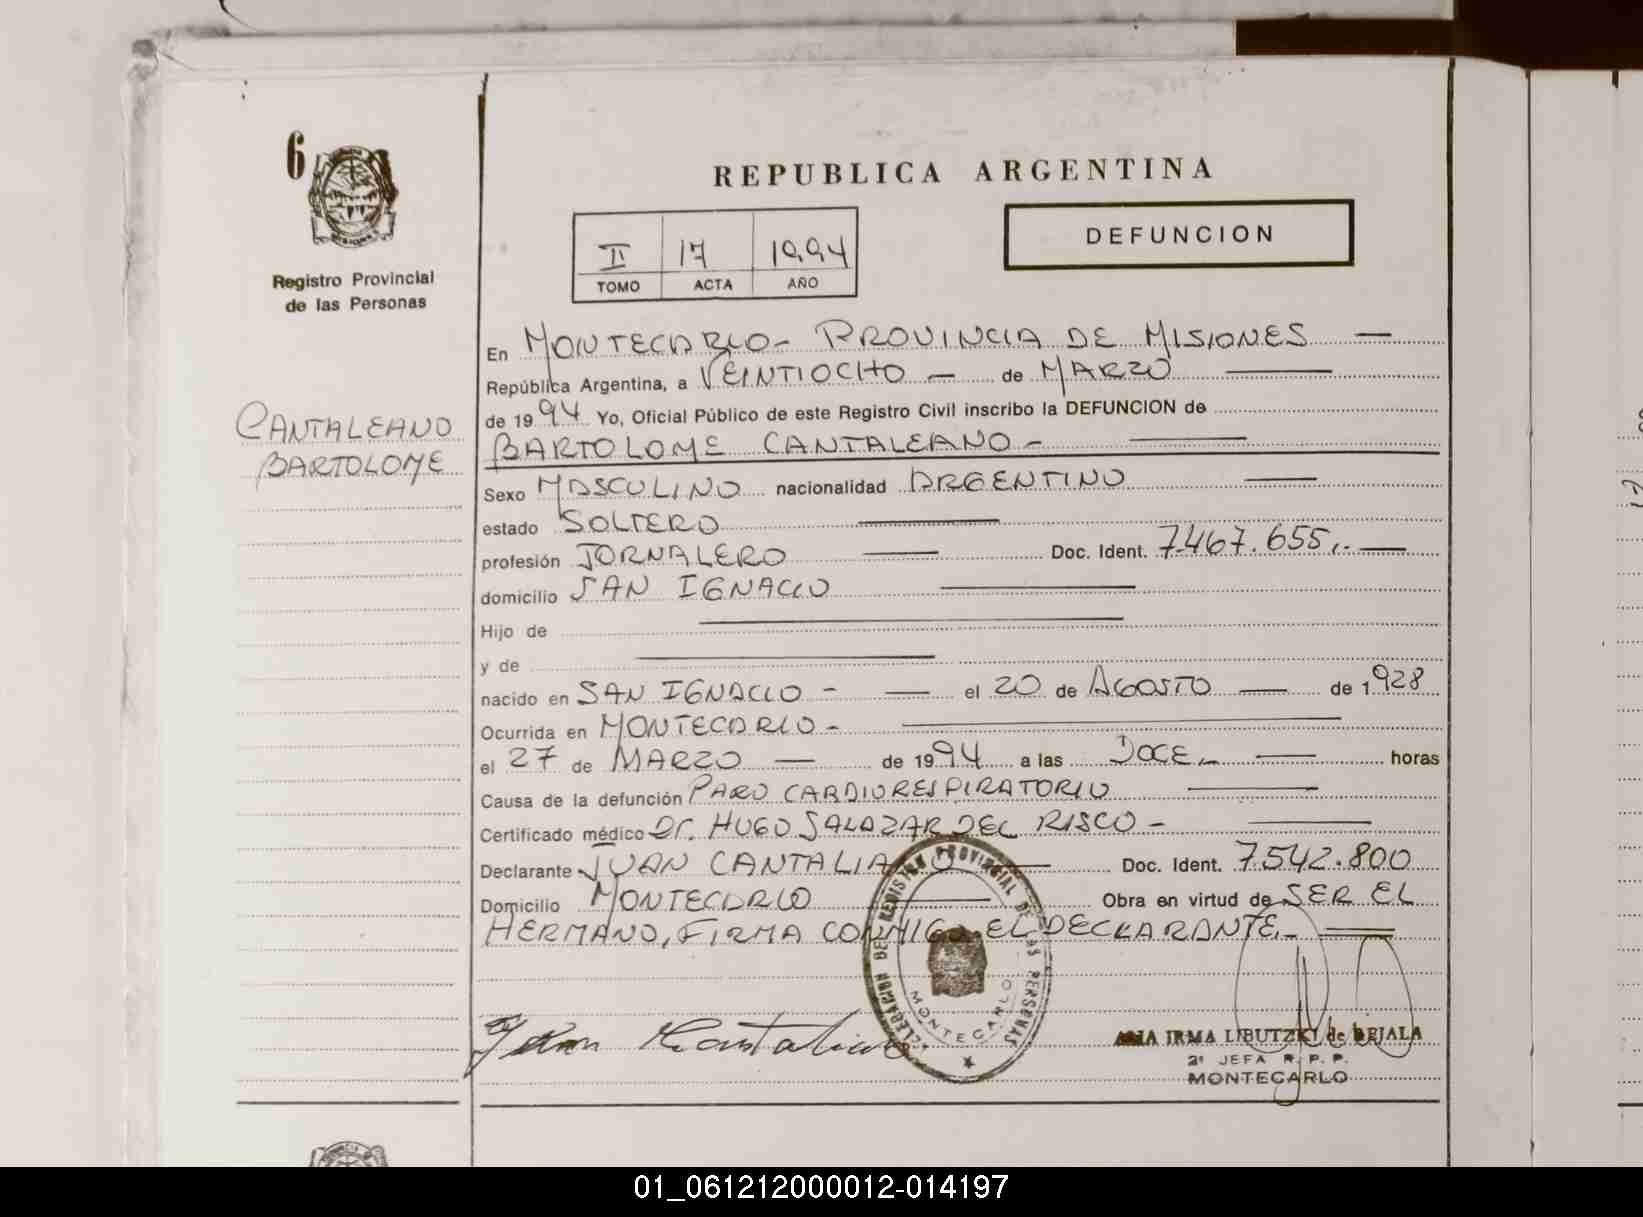 6
Registro Provincial
de las Personas
REPUBLICA ARGENTINA
II 17 1994
TOMO ACTA AÑO
DEFUNCION
CANTALEANO
BARTOLOME
En MONTECARLO - PROVINCIA DE MISIONES —
República Argentina, a VEINTIOCHO — de MARZO —
de 1994 Yo, Oficial Público de este Registro Civil inscribo la DEFUNCION de
BARTOLOME CANTALEANO - —
Sexo MASCULINO nacionalidad ARGENTINO —
estado SOLTERO —
profesión JORNALERO — Doc. Ident. 7.467.655.- —
domicilio SAN IGNACIO —
Hijo de —
y de —
nacido en SAN IGNACIO - — el 20 de AGOSTO — de 1928
Ocurrida en MONTECARLO - —
el 27 de MARZO — de 1994 a las DOCE.- — horas
Causa de la defunción PARO CARDIORESPIRATORIO —
Certificado médico Dr. HUGO SALAZAR DEL RISCO - —
Declarante JUAN CANTALIANO — Doc. Ident. 7.542.800
Domicilio MONTECARLO — Obra en virtud de SER EL
HERMANO, FIRMA CONMIGO EL DECLARANTE.- —
DELEGACION DEL REGISTRO PROVINCIAL DE LAS PERSONAS
MONTECARLO
Juan Cantaliano
ANA IRMA LIBUTZKI de BEJALA
2ª JEFA R. P. P.
MONTECARLO
01_061212000012-014197